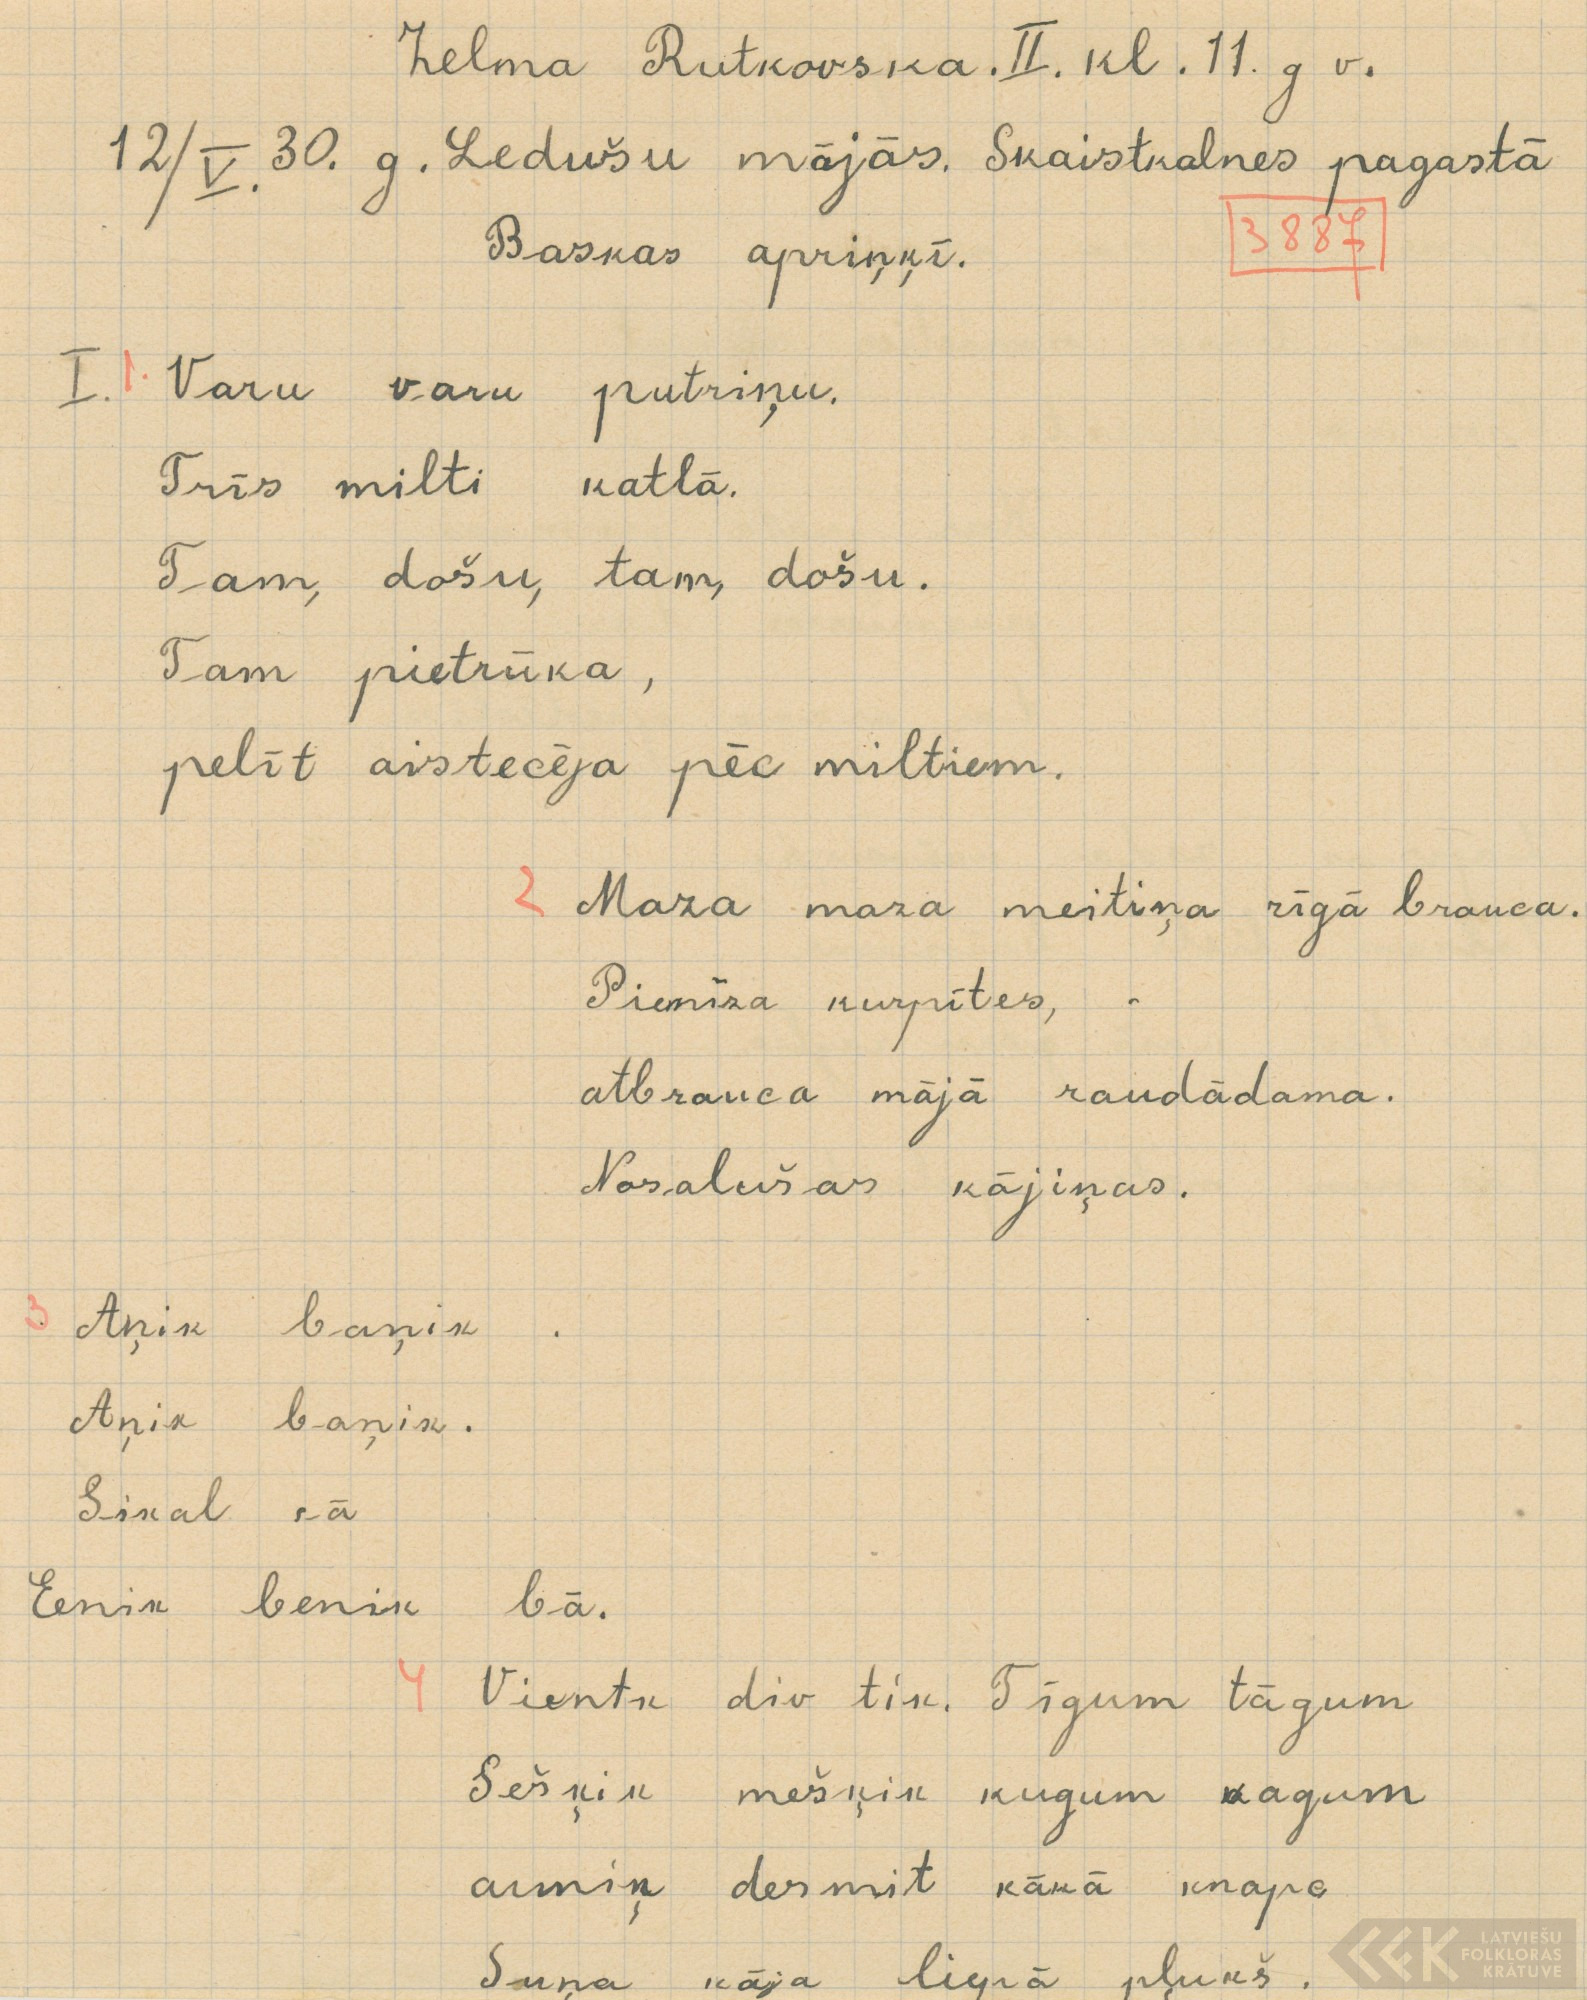 Zelma Rutkovska. II. kl. 11. g v.
12/V. 30. g. Ledušu mājās. Skaistkalnes pagastā
Baskas apriņķī.
3887
I. 1. Varu varu putriņu.
Trīs milti katlā.
Tam, došu, tam, došu.
Tam pietrūka,
pelīt aistecēja pēc miltiem.
2 Maza maza meitiņa rīgā brauca.
Piemīza kurpītes,
atbrauca mājā raudādama.
Nosalušas kājiņas.
3 Aņik baņik .
Aņik baņik.
Sikal sā
Eenik benik bā.
4 Vientk div tik. Tīgum tāgum
Sešķik mešķik kugum kagum
aumiņ desmit kākā knape
Suņa kāja liepā pļukš.
LATVIEŠU
FOLKLORAS
KRĀTUVE